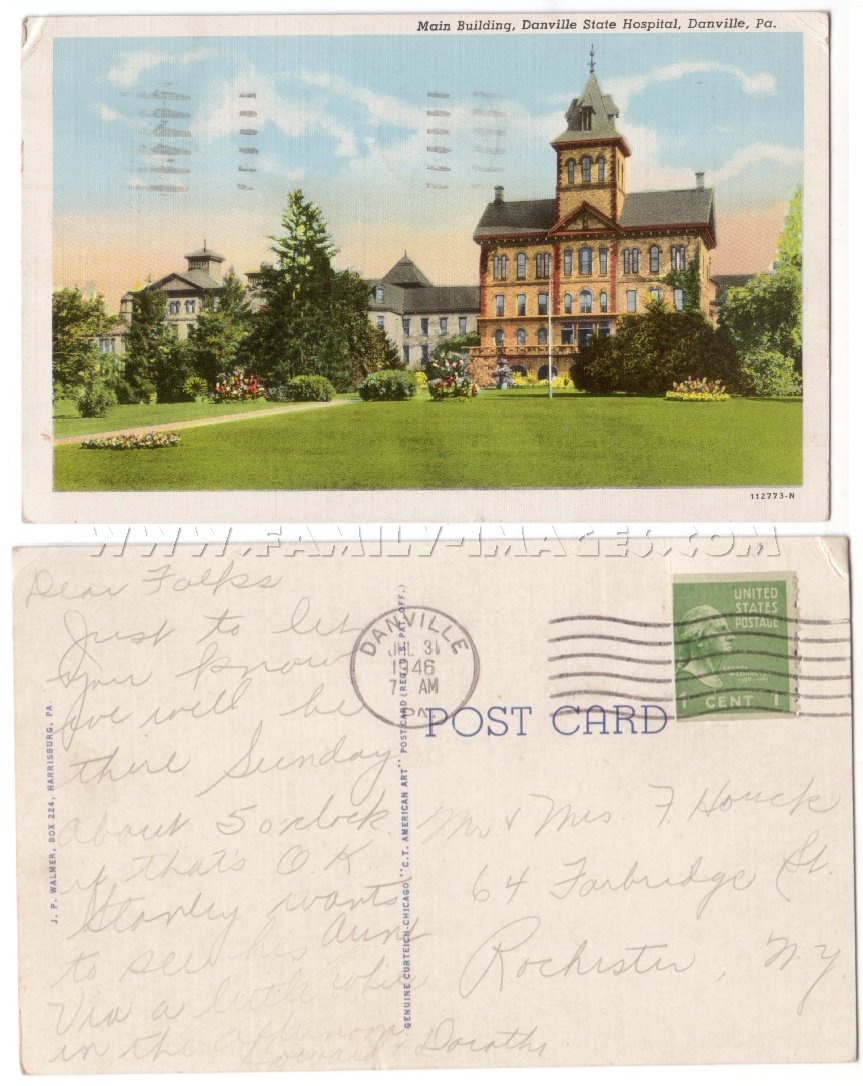 Main Building, Danville State Hospital, Danville, Pa.
112773-N
WWW.FAMILY-IMAGES.COM
Dear Folks
Just to let
you know
we will be
there Sunday
about 5 oclock
if that's O K
Stanley wants
to see his Aunt
Via a little while
in the afternoon
Howard & Dorothy
J. P. WALMER, BOX 224, HARRISBURG, PA.
GENUINE CURTEICH-CHICAGO "C.T. AMERICAN ART" POST CARD (REG. U.S. PAT. OFF.)
DANVILLE
JUL 31
1946
7 AM
PA
UNITED
STATES
POSTAGE
1 CENT 1
POST CARD
Mr & Mrs. F Houck
64 Farbridge St.
Rochester, N.Y.